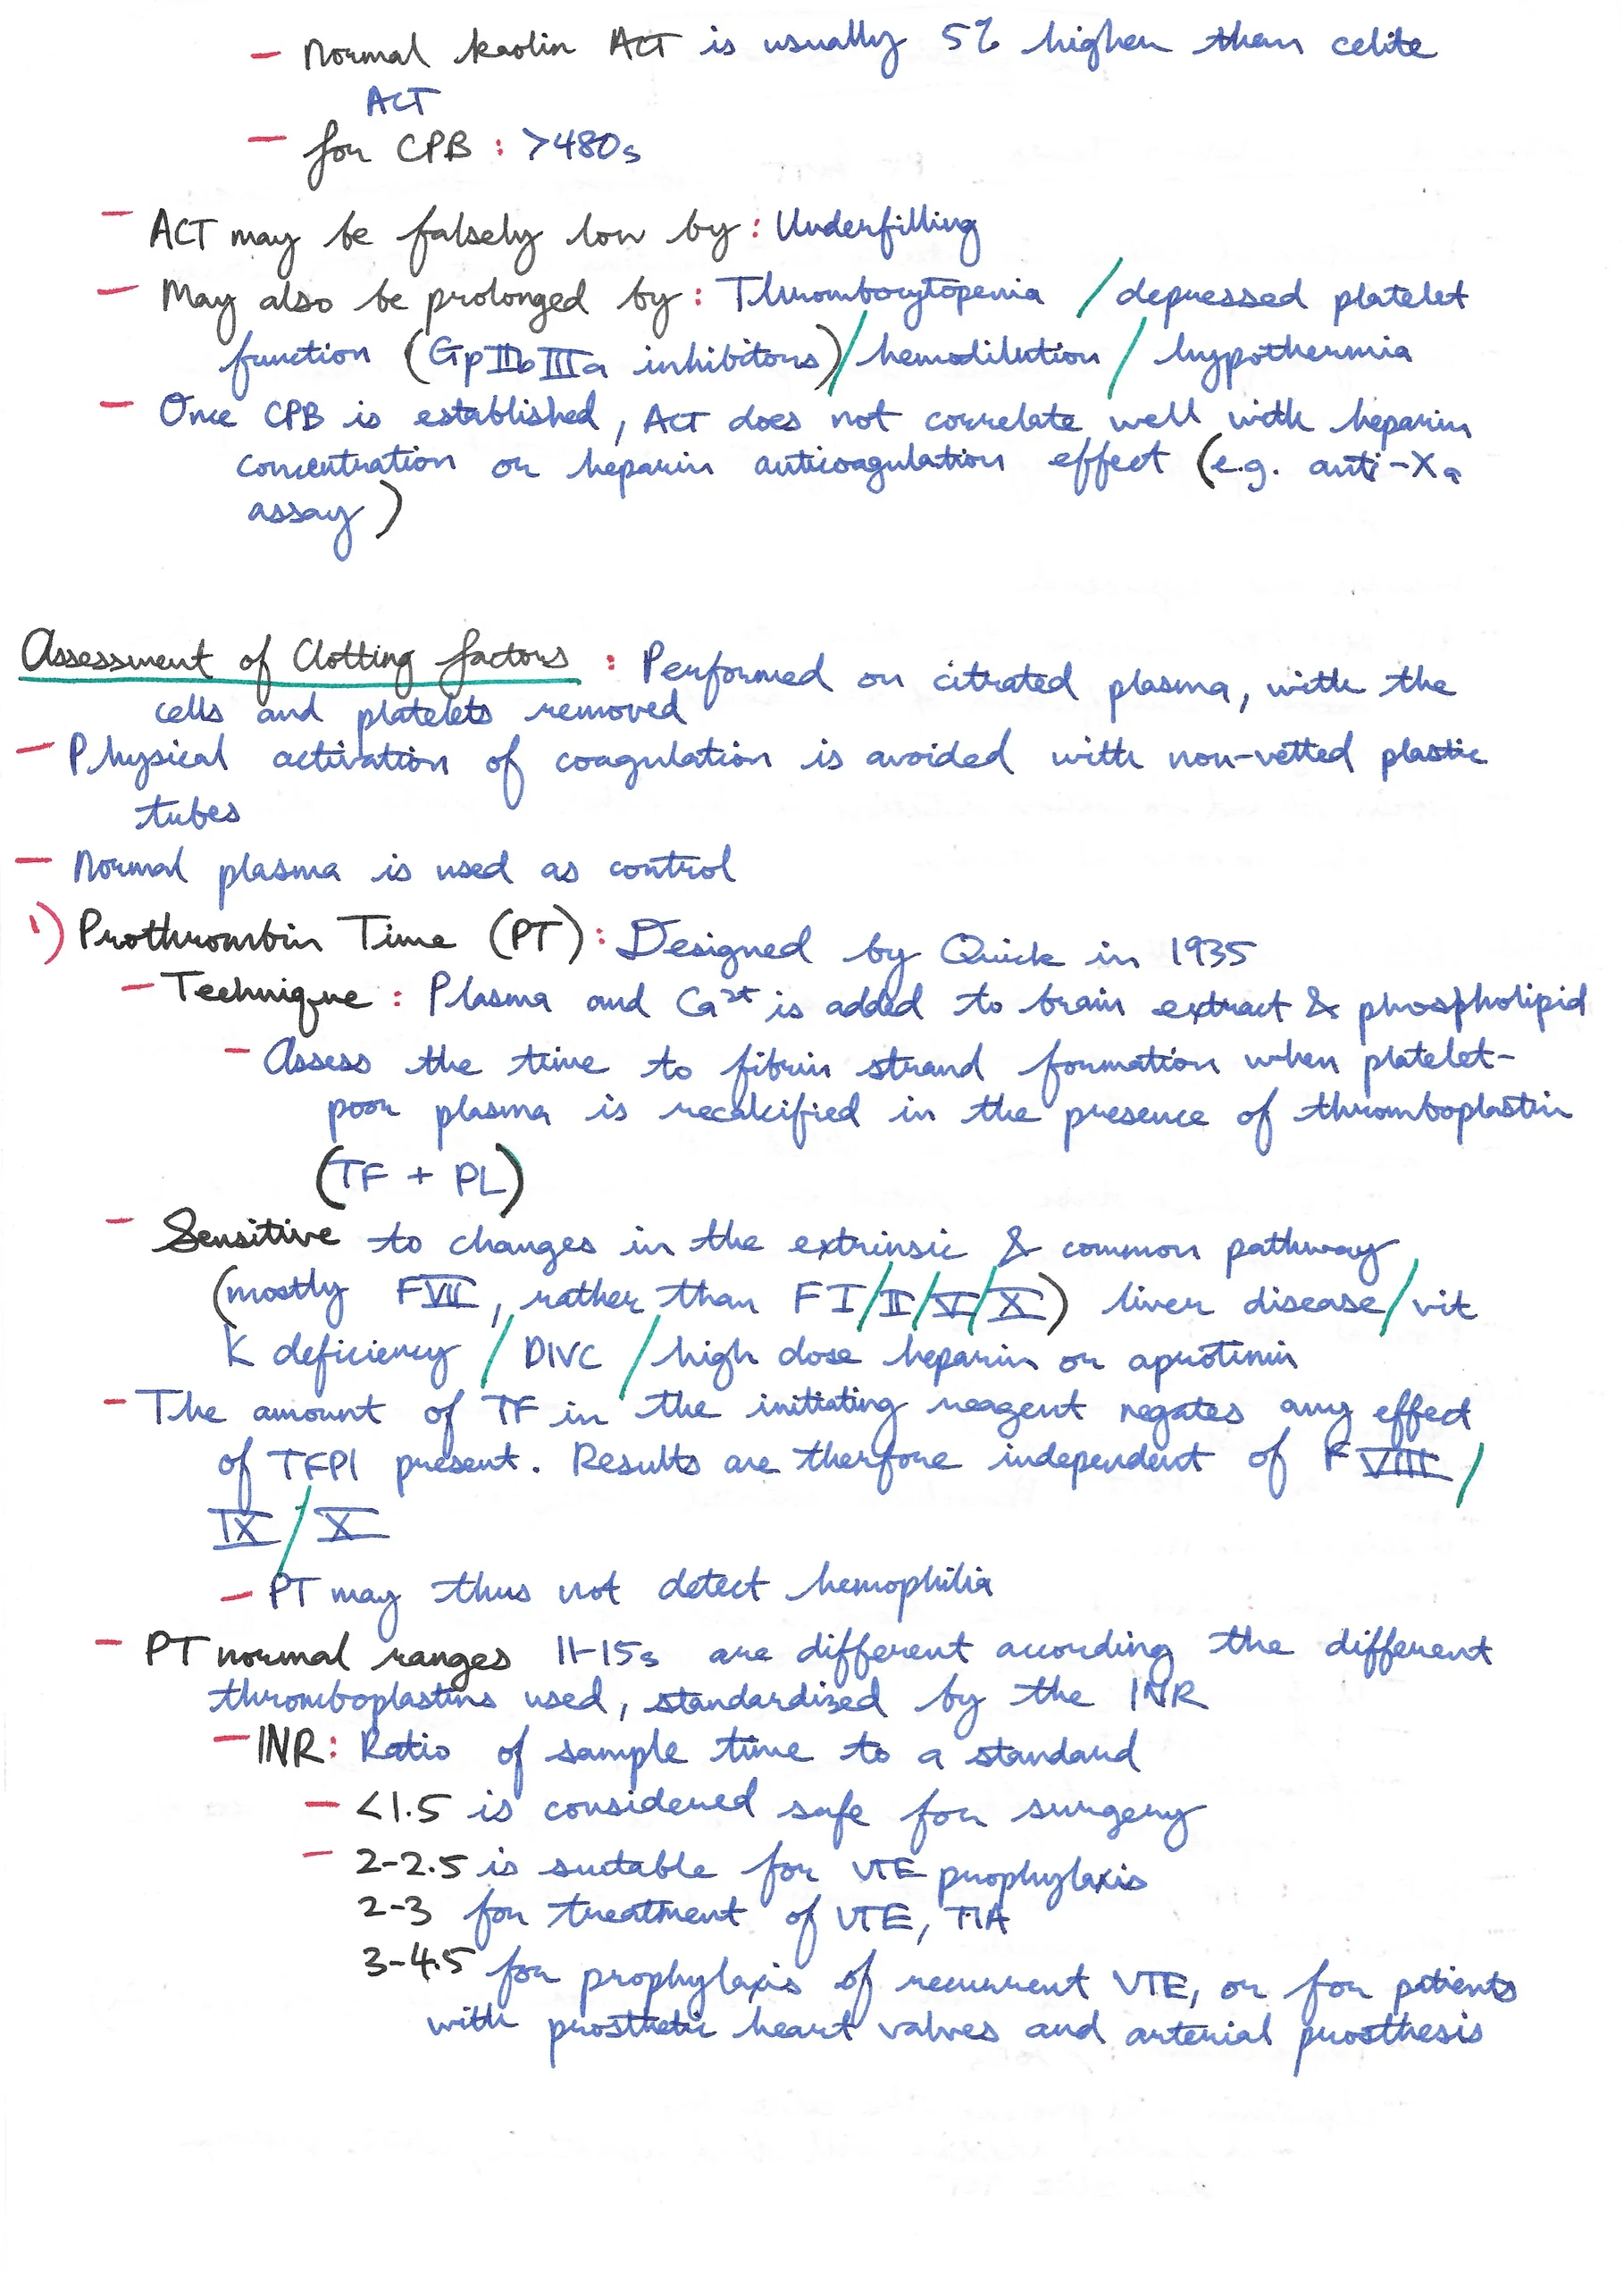 - Normal kaolin ACT is usually 5% higher than celite
ACT
- for CPB : >480s
- ACT may be falsely low by : Underfilling
- May also be prolonged by : Thrombocytopenia / depressed platelet
function (GpIIbIIIa inhibitors) / hemodilution / hypothermia
- Once CPB is established, ACT does not correlate well with heparin
concentration or heparin anticoagulation effect (e.g. anti-Xa
assay)
Assessment of Clotting factors : Performed on citrated plasma, with the
cells and platelets removed
- Physical activation of coagulation is avoided with non-vetted plastic
tubes
- Normal plasma is used as control
1) Prothrombin Time (PT) : Designed by Quick in 1935
- Technique : Plasma and Ca2+ is added to brain extract & phospholipid
- Assess the time to fibrin strand formation when platelet-
poor plasma is recalcified in the presence of thromboplastin
(TF + PL)
- Sensitive to changes in the extrinsic & common pathway
(mostly FVII, rather than FI/II/V/X) liver disease / vit
K deficiency / DIVC / high dose heparin or aprotinin
- The amount of TF in the initiating reagent negates any effect
of TFPI present. Results are therfore independent of F VIII /
IX / X
- PT may thus not detect hemophilia
- PT normal ranges 11-15s are different according the different
thromboplastins used, standardized by the INR
- INR : Ratio of sample time to a standard
- <1.5 is considered safe for surgery
- 2-2.5 is suitable for VTE prophylaxis
2-3 for treatment of VTE, TIA
3-4.5 for prophylaxis of recurrent VTE, or for patients
with prosthetic heart valves and arterial prosthesis